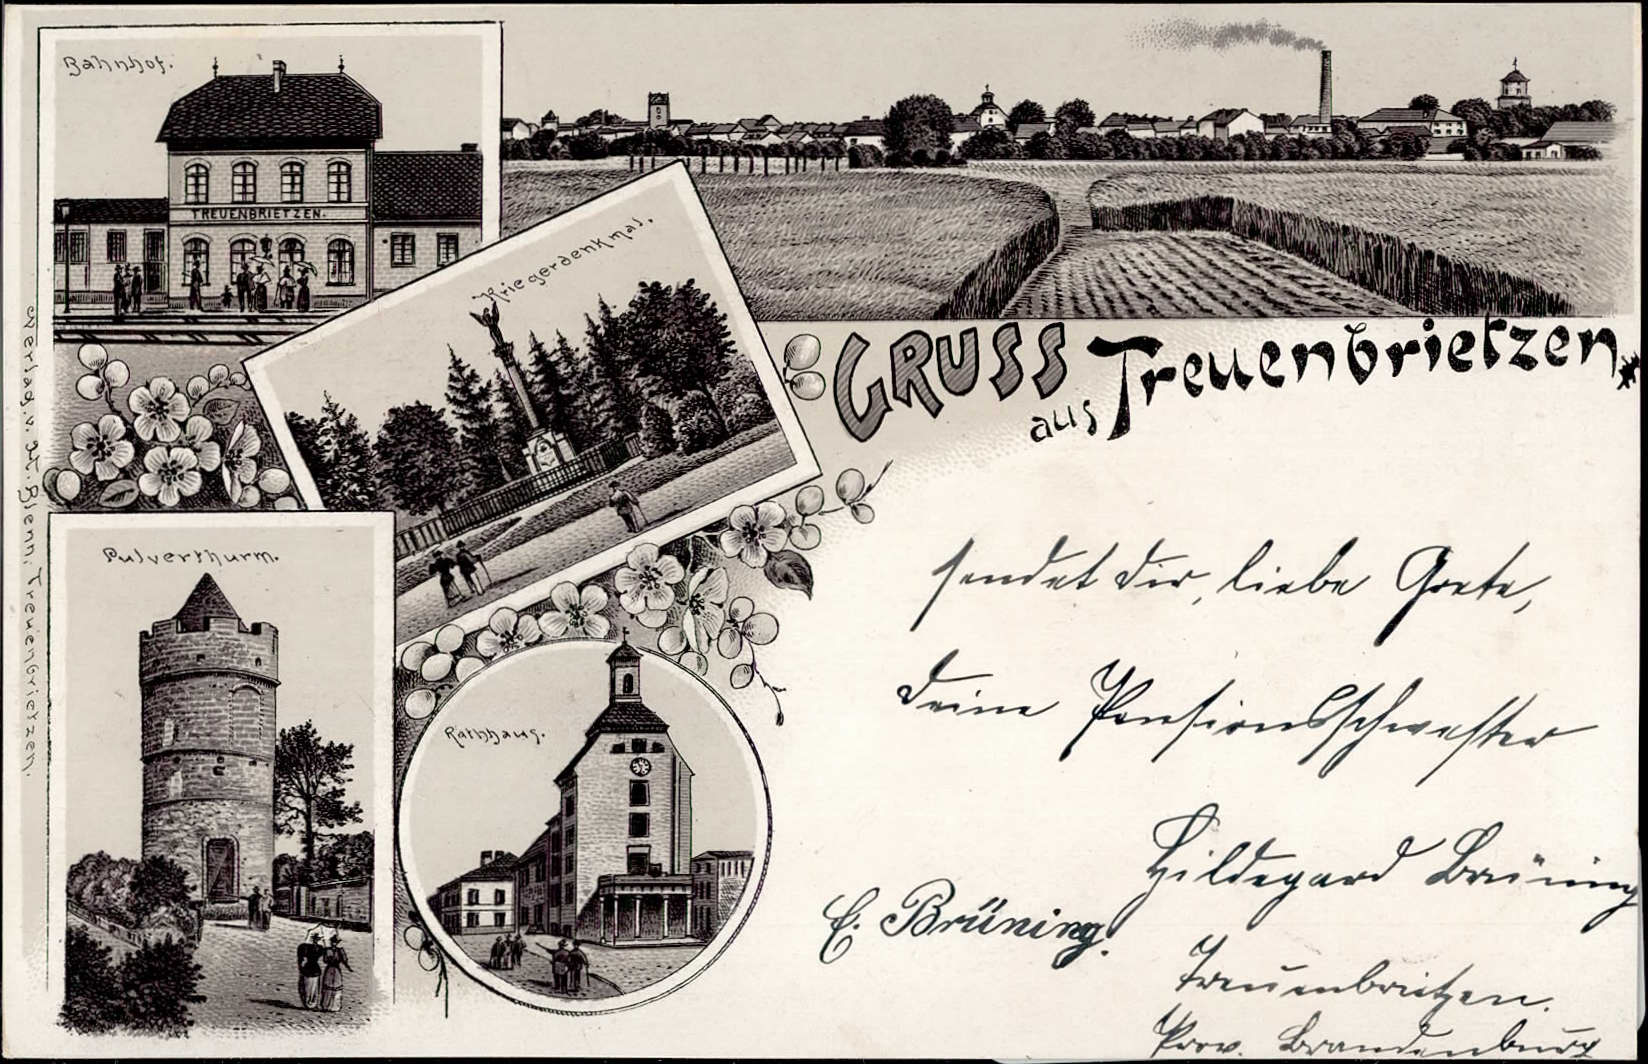 Bahnhof.
TREUENBRIETZEN.
Kriegerdenkmal.
GRUSS
aus Treuenbrietzen
Pulverthurm.
Rathhaus.
Verlag v. H. Blenn, Treuenbrietzen.
sendet Dir, liebe Grete,
Deine Pensionsschwester
Hildegard Brüning
E. Brüning.
Treuenbrietzen.
Prov. Brandenburg